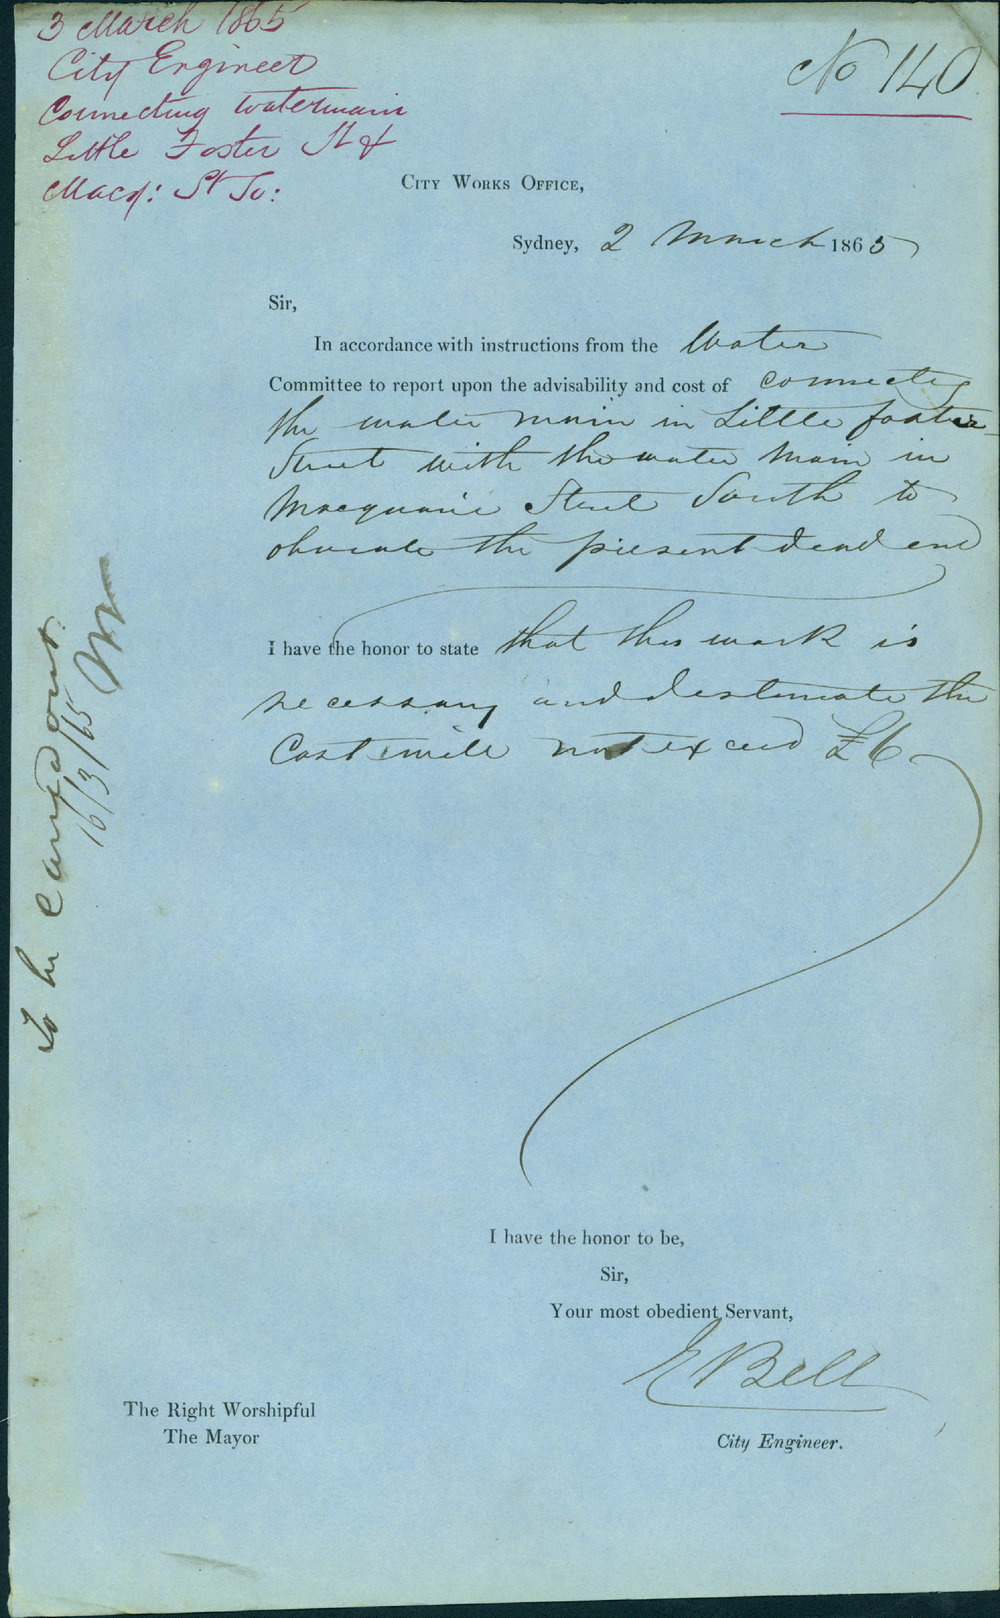 3 March 1865
City Engineer
Connecting watermain
Little Foster St &
Macq: St So:
No 140
City Works Office,
Sydney, 2 March 1865
Sir,
In accordance with instructions from the Water
Committee to report upon the advisability and cost of connecting
the water main in Little foster
Street with the water main in
Macquarie Street South to
obviate the present dead end
I have the honor to state that this work is
necessary and I estimate the
Cost will not exceed £6
To be carried out
16/3/65
I have the honor to be,
Sir,
Your most obedient Servant,
E Bell
City Engineer.
The Right Worshipful
The Mayor